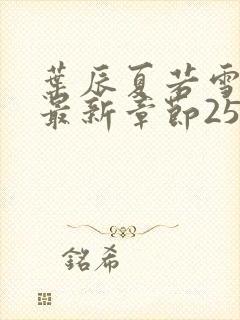 葉辰夏若雪
最新章節25
銘希